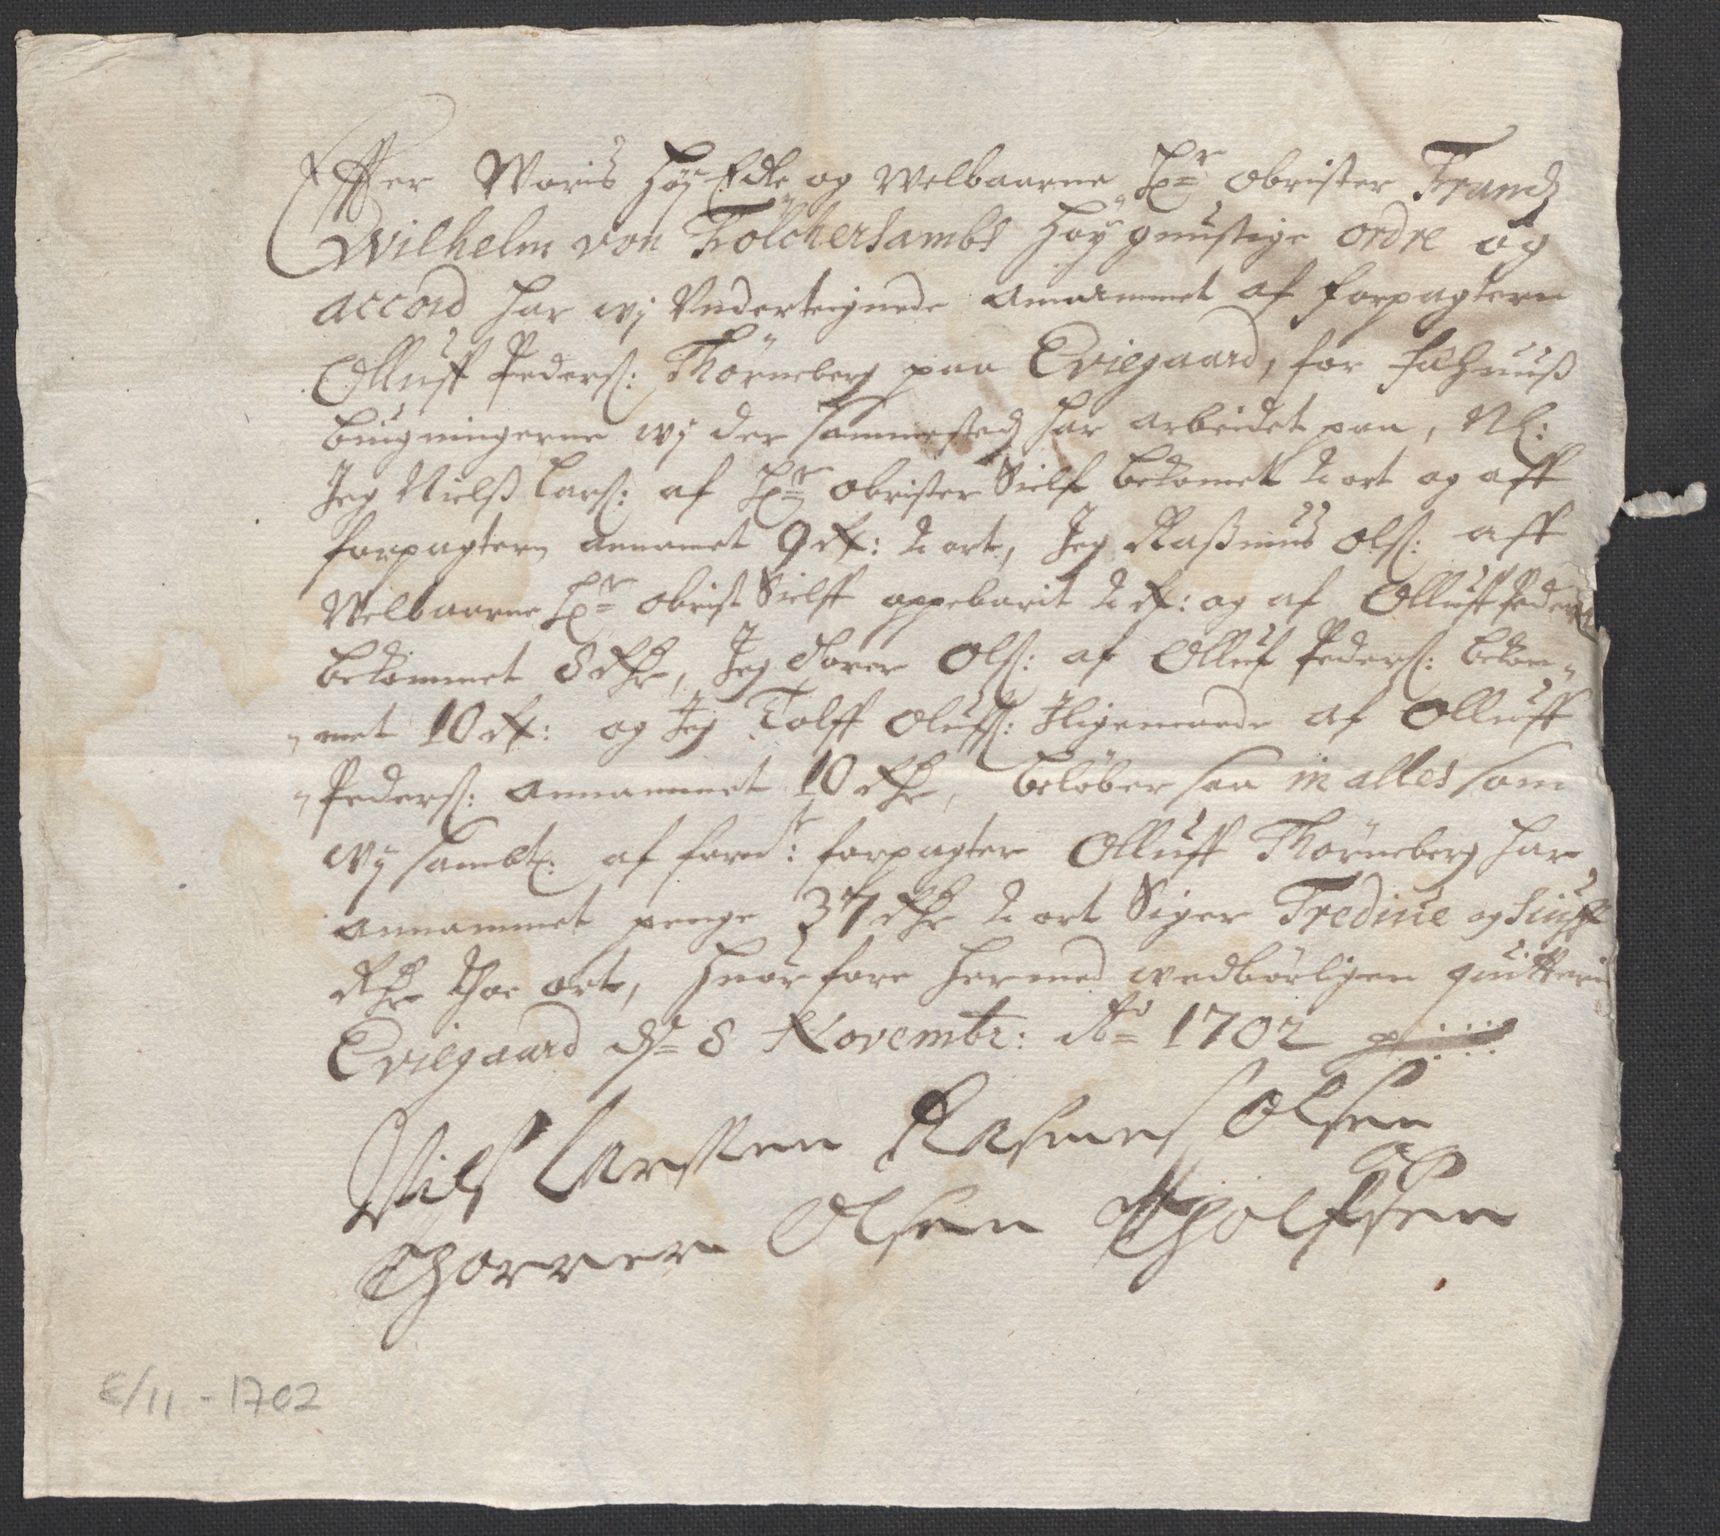 Effter Woris Høy Edle og Welbaarne Hr. obrister Frandz
Wilhelm von Folckersambs Høygunstige ordre og
accord har wj Underteignede anammet af forpagteren
Olluff Peders: Thørneberg paa Eviegaard, for fæhuuß
bugningerne wj der sammestedz har arbeidet paa, Nl:
Jeg Nielß Lars: af Hr. obrister Sielf bekomet 2 ort og aff
forpagteren annamet 9 rd: 2 ort, Jeg Raßmus Ols: aff
Welbaarne Hr. obrist Sielff oppebarit 2 rd: og af Olluff Peders
bekommet 8 rdr, Jeg Torer Ols: af Olluf Peders: bekom-
met 10 rd: og Jeg Tolff Olufs: Iligemaade af Olluff
Peders: annammet 10 rdr, beløber saa in alles som
wj sambt: af forn: forpagter Olluff Thørneberg har
annammet penge 37 rdr 2 ort Siger Tredive og Siuff
rdr Thoe ort, Huorfore hermed wedbørligen quitteris
Eviegaard d. 8 Novembr: Ao 1702
Nilß Larssen Rasmes Olsen
Thorrer Olsen Thiolf Olsen
8/11 - 1702